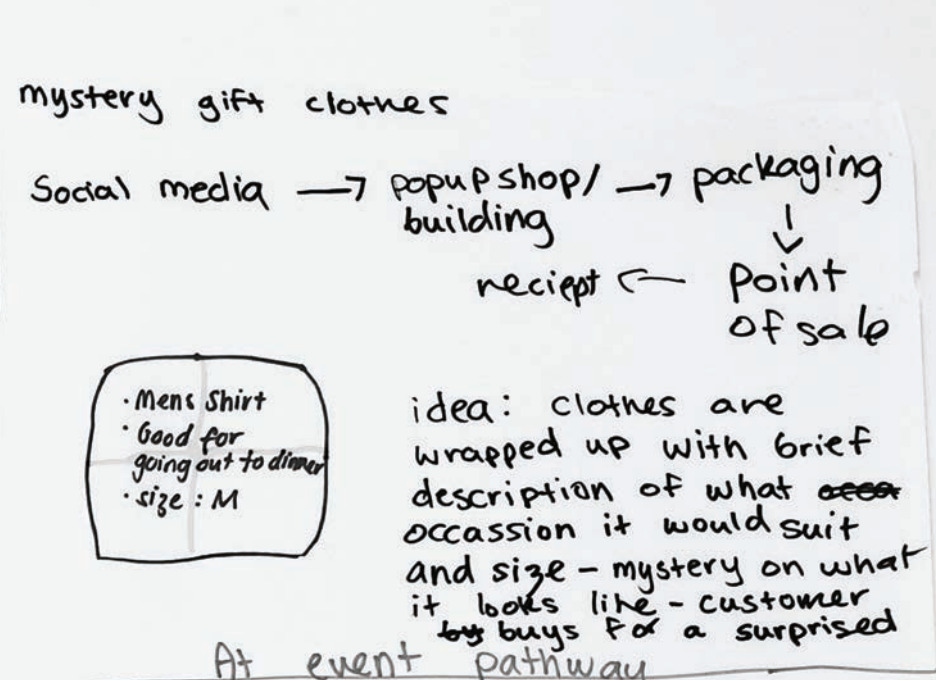 mystery gift clothes
Social media → popup shop/ → packaging
building
↓
reciept ← Point
of sale
• Mens Shirt
• Good for
going out to dinner
• size : M
idea: clothes are
wrapped up with brief
description of what
occassion it would suit
and size - mystery on what
it looks like - customer
buys for a surprised
At event pathway